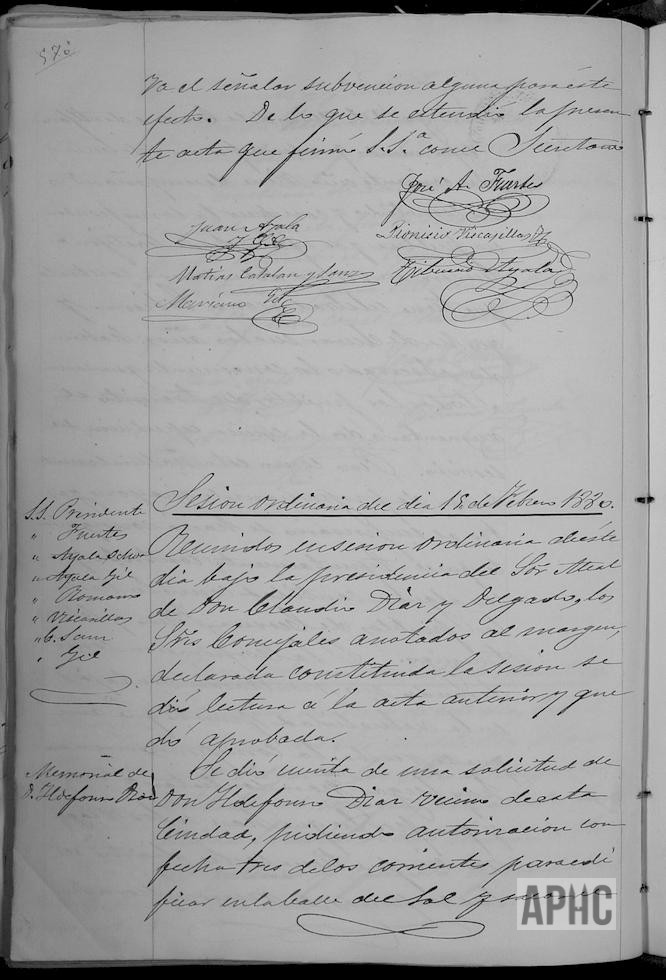 va el señalar subvencion alguna para éste
efecto. De lo que se estendió la presen-
te acta que firmó S.S.ª como Secretario
José A. Fuertes
Juan Ayala
y Gil
Dionisio Viscasillas
Matias Catalan y Sanz
Tiburcio Ayala
Mariano Gil
Sesion ordinaria del dia 15 de Febrero 1880.
S.S. Presidente
" Fuertes
" Ayala
" Ayala Gil
" Romano
" Viscasillas
" C. Sanz
" Gil
Reunidos en sesion ordinaria de éste
dia bajo la presidencia del Sor Alcal
de Don Claudio Diaz y Delgado, los
Sres Concejales anotados al margen,
declarada constituida la sesion se
dió lectura á la acta anterior y que
dó aprobada.
Memorial de
D. Ildefonso Diaz
Se dió cuenta de una solicitud de
Don Ildefonso Diaz vecino de esta
Ciudad, pidiendo autorizacion con
fecha tres de los corrientes para edi
ficar en la calle del Sol y
APHC